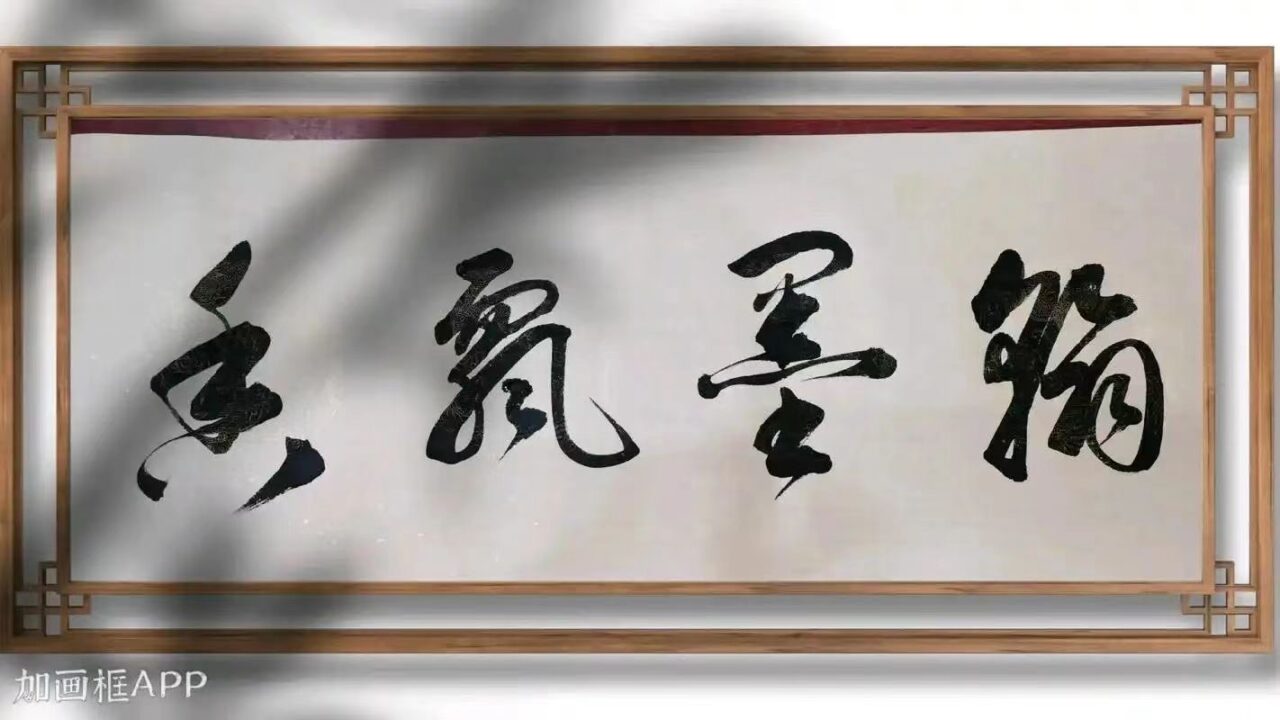 翰墨飄香
加画框APP